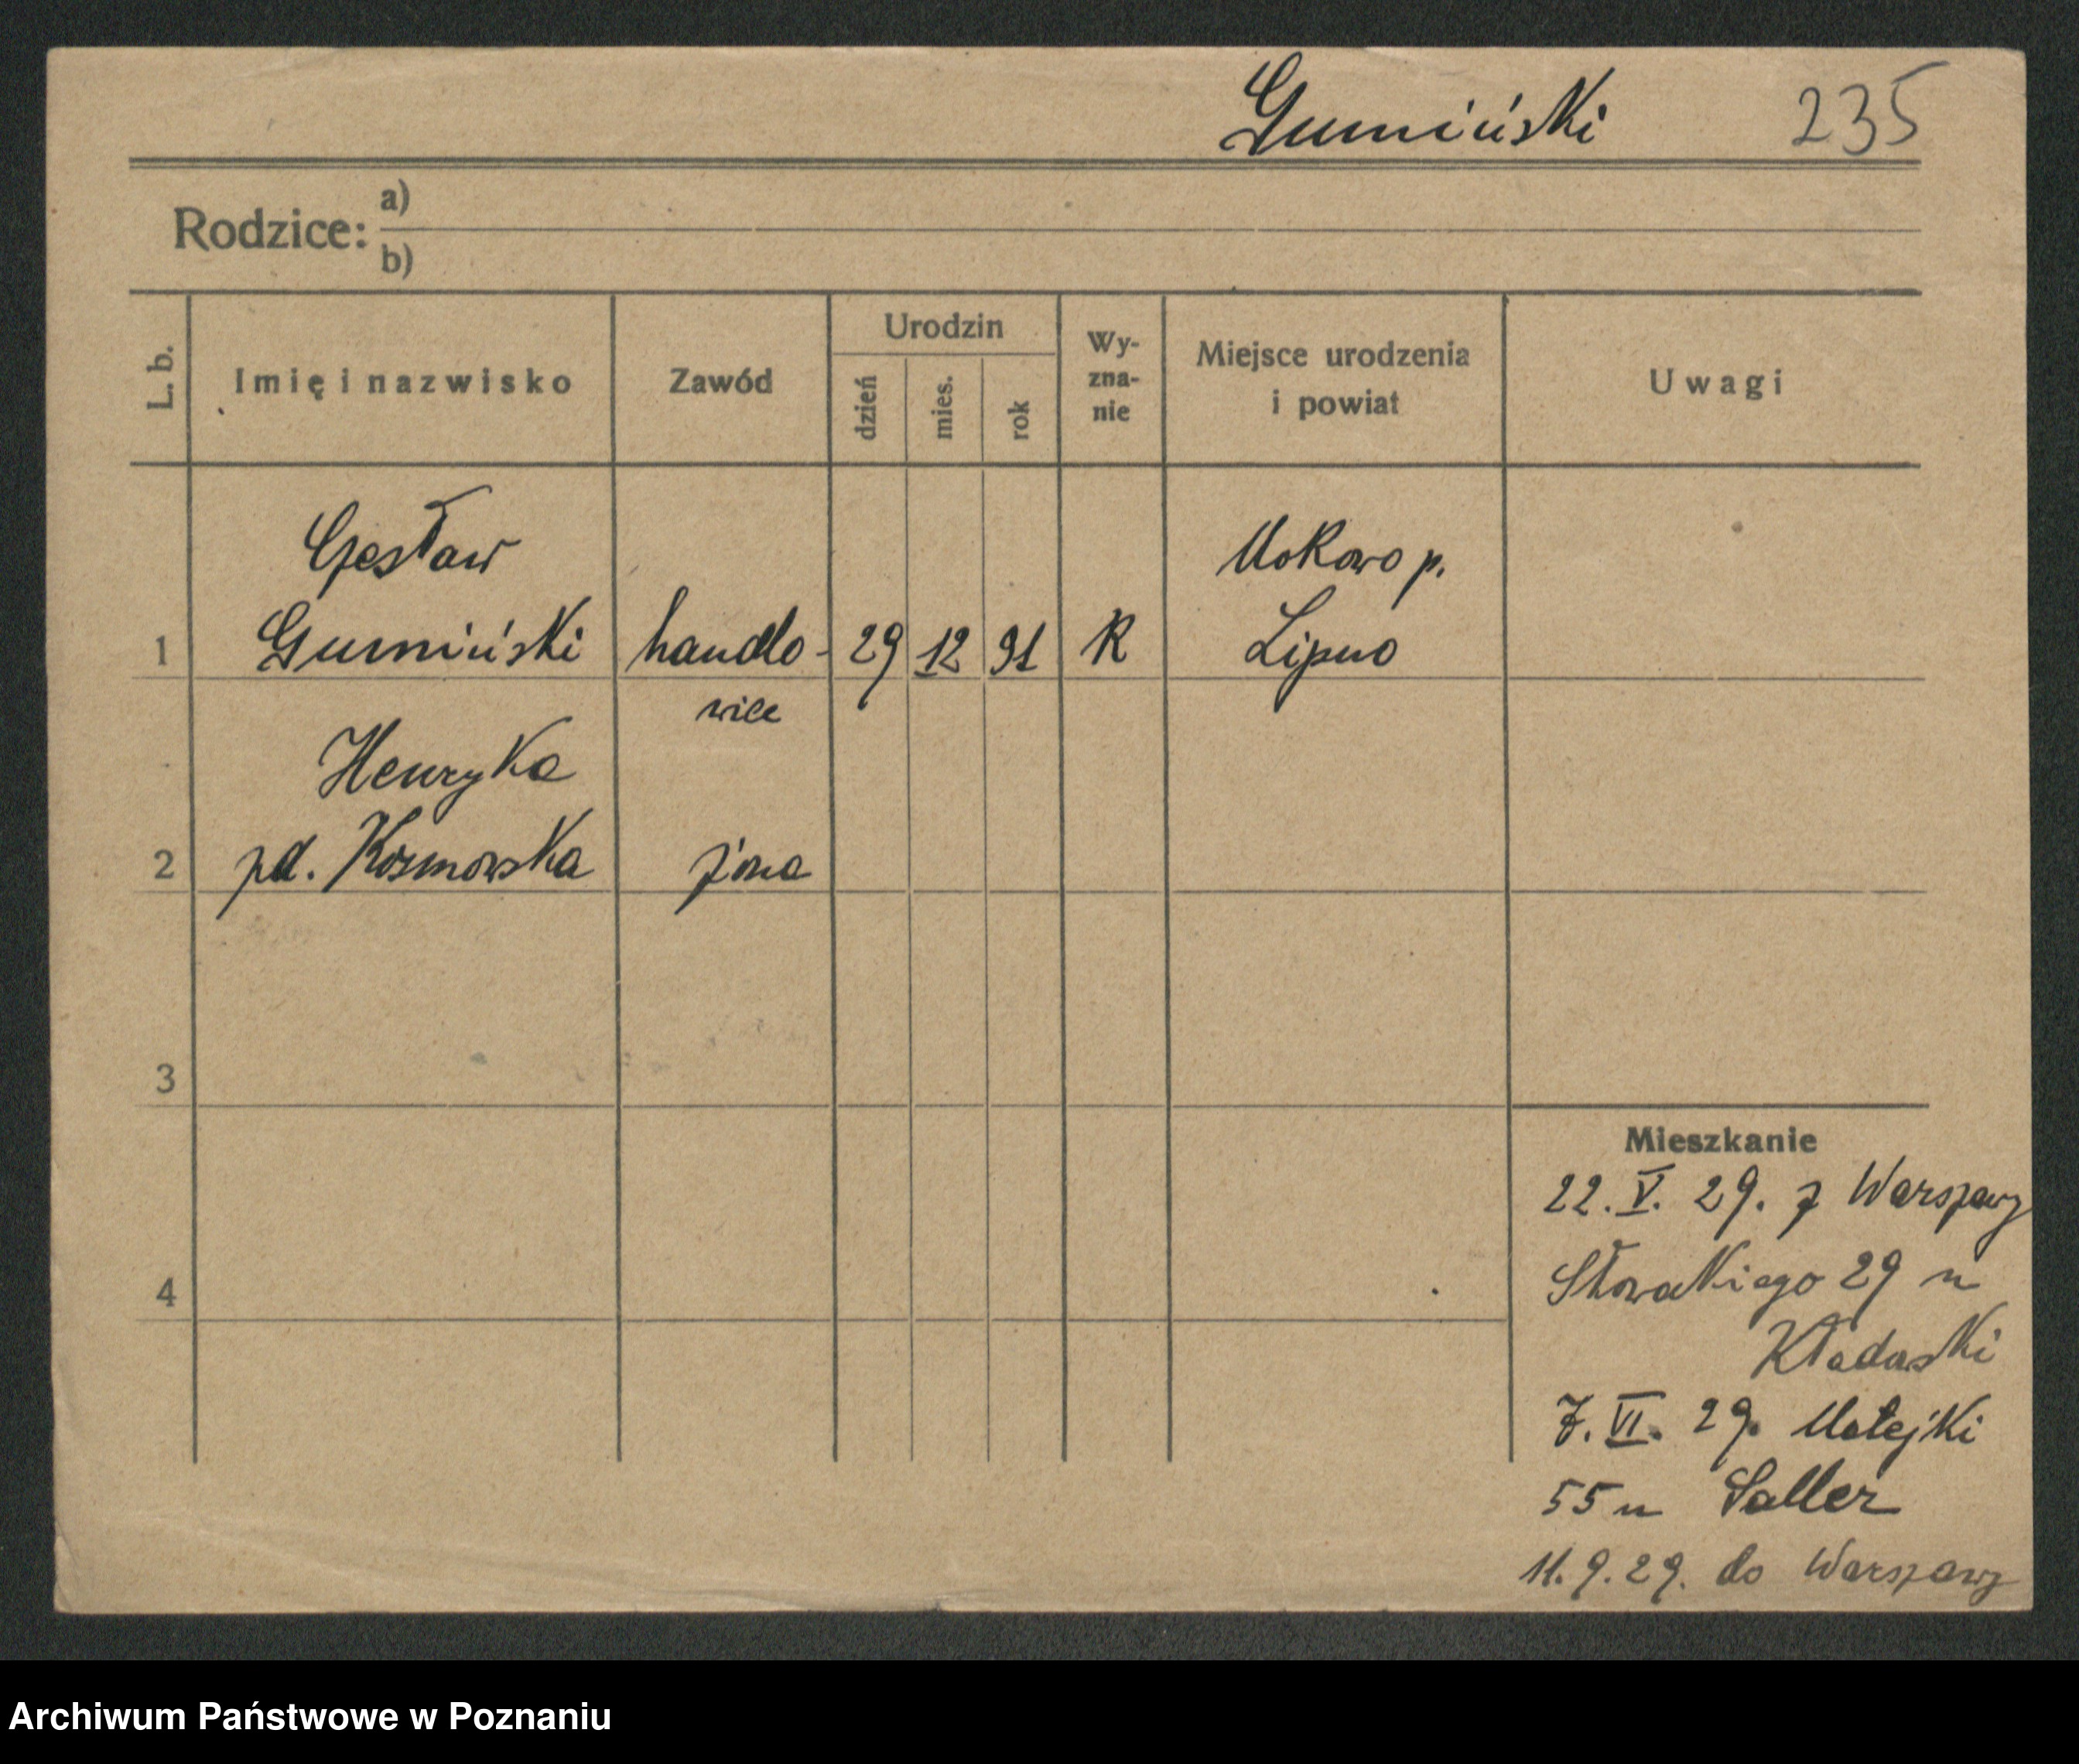 Gumiński 235
Rodzice: a)
b)
L. b.
Imię i nazwisko
Zawód
Urodzin
dzień
mies.
rok
Wy-
zna-
nie
Miejsce urodzenia
i powiat
Uwagi
Czesław
Mokowo p.
1 Gumiński handlo- 29 12 91 R Lipno
wiec
Henryka
2 pd. Kosmowska żona
3
Mieszkanie
22. V. 29. z Warszawy
4
Słowackiego 29 u
7. VI. 29. Matejki
55 u Saller
11. 9. 29. do Warszawy
Archiwum Państwowe w Poznaniu